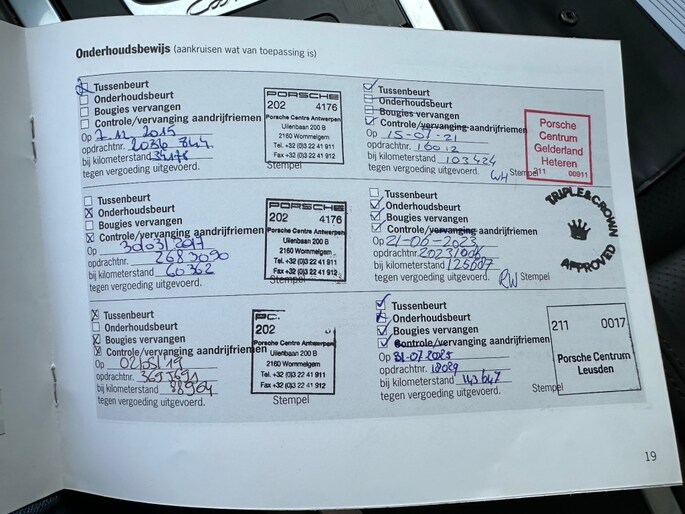 Onderhoudsbewijs (aankruisen wat van toepassing is)
Tussenbeurt
Onderhoudsbeurt
Bougies vervangen
Controle/vervanging aandrijfriemen
Op 7.12.2015
opdrachtnr. 2036 844
bij kilometerstand 34176
tegen vergoeding uitgevoerd.
Stempel
PORSCHE
202 4176
Porsche Centre Antwerpen
Uilenbaan 200 B
2160 Wommelgem
Tel. +32 (0)3 22 41 911
Fax +32 (0)3 22 41 912
Tussenbeurt
Onderhoudsbeurt
Bougies vervangen
Controle/vervanging aandrijfriemen
Op 30/03/2017
opdrachtnr. 2683090
bij kilometerstand 60362
tegen vergoeding uitgevoerd.
Stempel
PORSCHE
202 4176
Porsche Centre Antwerpen
Uilenbaan 200 B
2160 Wommelgem
Tel. +32 (0)3 22 41 911
Fax +32 (0)3 22 41 912
Tussenbeurt
Onderhoudsbeurt
Bougies vervangen
Controle/vervanging aandrijfriemen
Op 02/05/19
opdrachtnr.
bij kilometerstand 88904
tegen vergoeding uitgevoerd.
Stempel
202
Porsche Centre Antwerpen
Uilenbaan 200 B
2160 Wommelgem
Tel. +32 (0)3 22 41 911
Fax +32 (0)3 22 41 912
Tussenbeurt
Onderhoudsbeurt
Bougies vervangen
Controle/vervanging aandrijfriemen
Op 15-07-21
opdrachtnr. 16012
bij kilometerstand 103424
tegen vergoeding uitgevoerd.
WH Stempel
Porsche
Centrum
Gelderland
Heteren
211 00911
Tussenbeurt
Onderhoudsbeurt
Bougies vervangen
Controle/vervanging aandrijfriemen
Op 21-06-2023
opdrachtnr. 20231006
bij kilometerstand 125607
tegen vergoeding uitgevoerd.
RW Stempel
TRIPLE CROWN
APPROVED
Tussenbeurt
Onderhoudsbeurt
Bougies vervangen
Controle/vervanging aandrijfriemen
Op 31-07-2025
opdrachtnr. 18029
bij kilometerstand 143647
tegen vergoeding uitgevoerd.
Stempel
211 0017
Porsche Centrum
Leusden
19